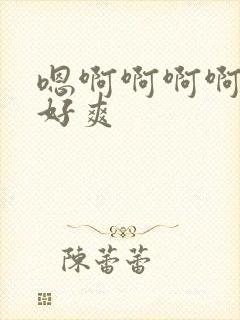 嗯啊啊啊啊
好爽
陳蕾蕾